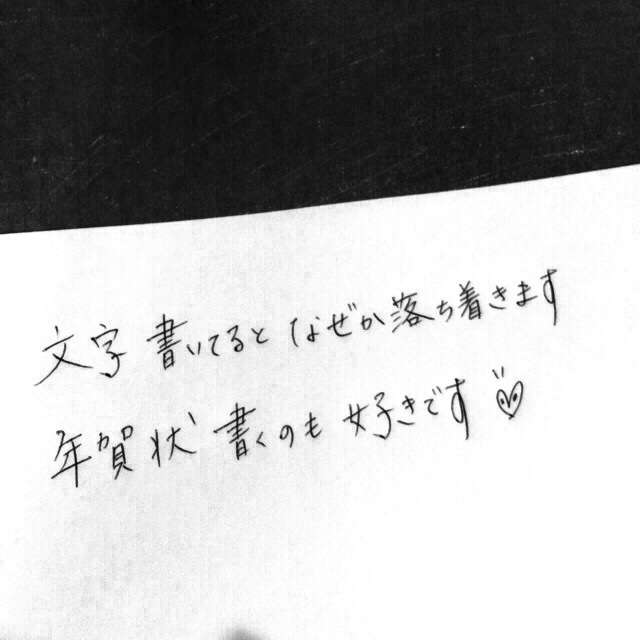 文字書いてるとなぜか落ち着きます
年賀状書くのも好きです